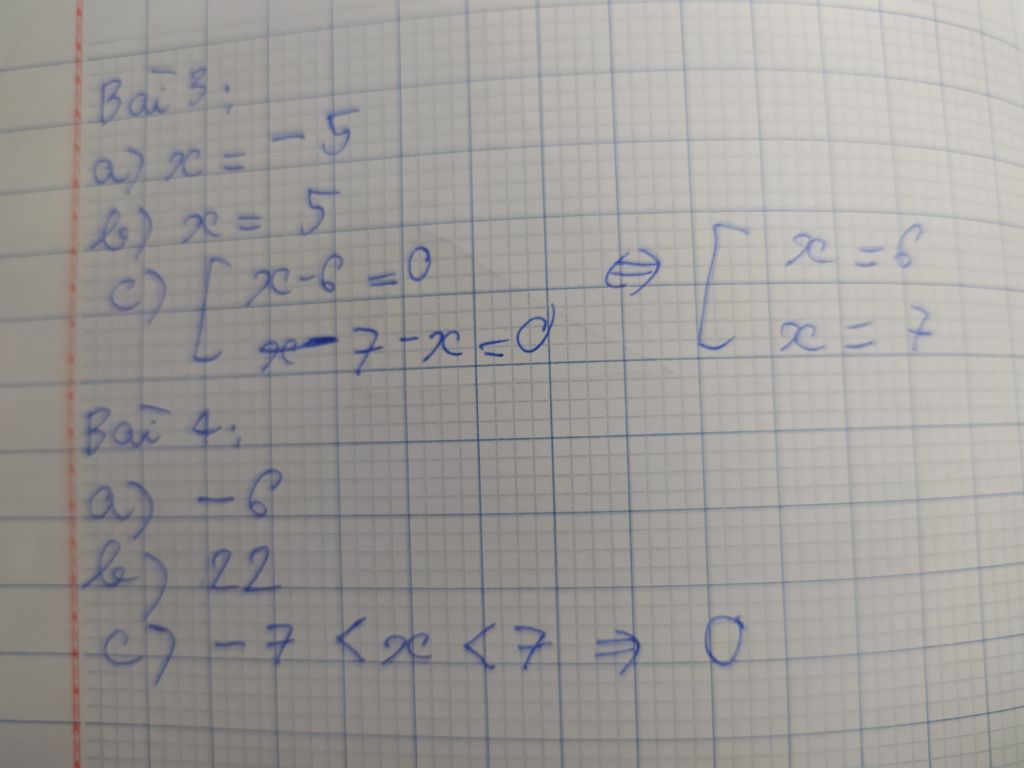 Bài 3:
a) x = -5
b) x = 5
c) [ x - 6 = 0 ⇔ [ x = 6
x - 7 - x = 0 x = 7
Bài 4:
a) -6
b) 22
c) -7 < x < 7 ⇒ 0